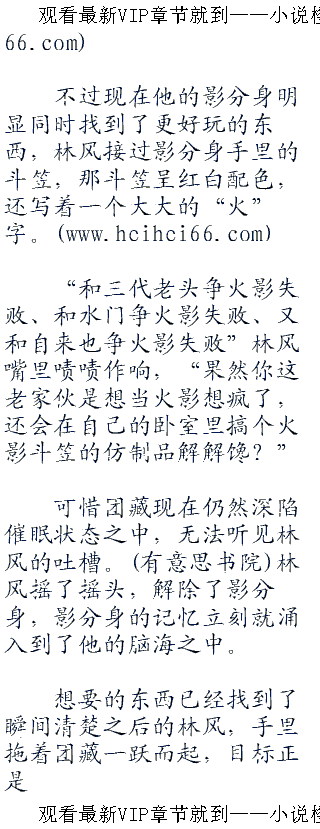 观看最新VIP章节就到——小说
66.com)
不过现在他的影分身明
显同时找到了更好玩的东
西，林风接过影分身手里的
斗笠，那斗笠呈红白配色，
还写着一个大大的“火”
字。(www.hcihci66.com)
“和三代老头争火影失
败、和水门争火影失败、又
和自来也争火影失败”林风
嘴里啧啧作响，“果然你这
老家伙是想当火影想疯了，
还会在自己的卧室里搞个火
影斗笠的仿制品解解馋？”
可惜团藏现在仍然深陷
催眠状态之中，无法听见林
风的吐槽。(有意思书院)林
风摇了摇头，解除了影分
身，影分身的记忆立刻就涌
入到了他的脑海之中。
想要的东西已经找到了
瞬间清楚之后的林风，手里
拖着团藏一跃而起，目标正
是
观看最新VIP章节就到——小说